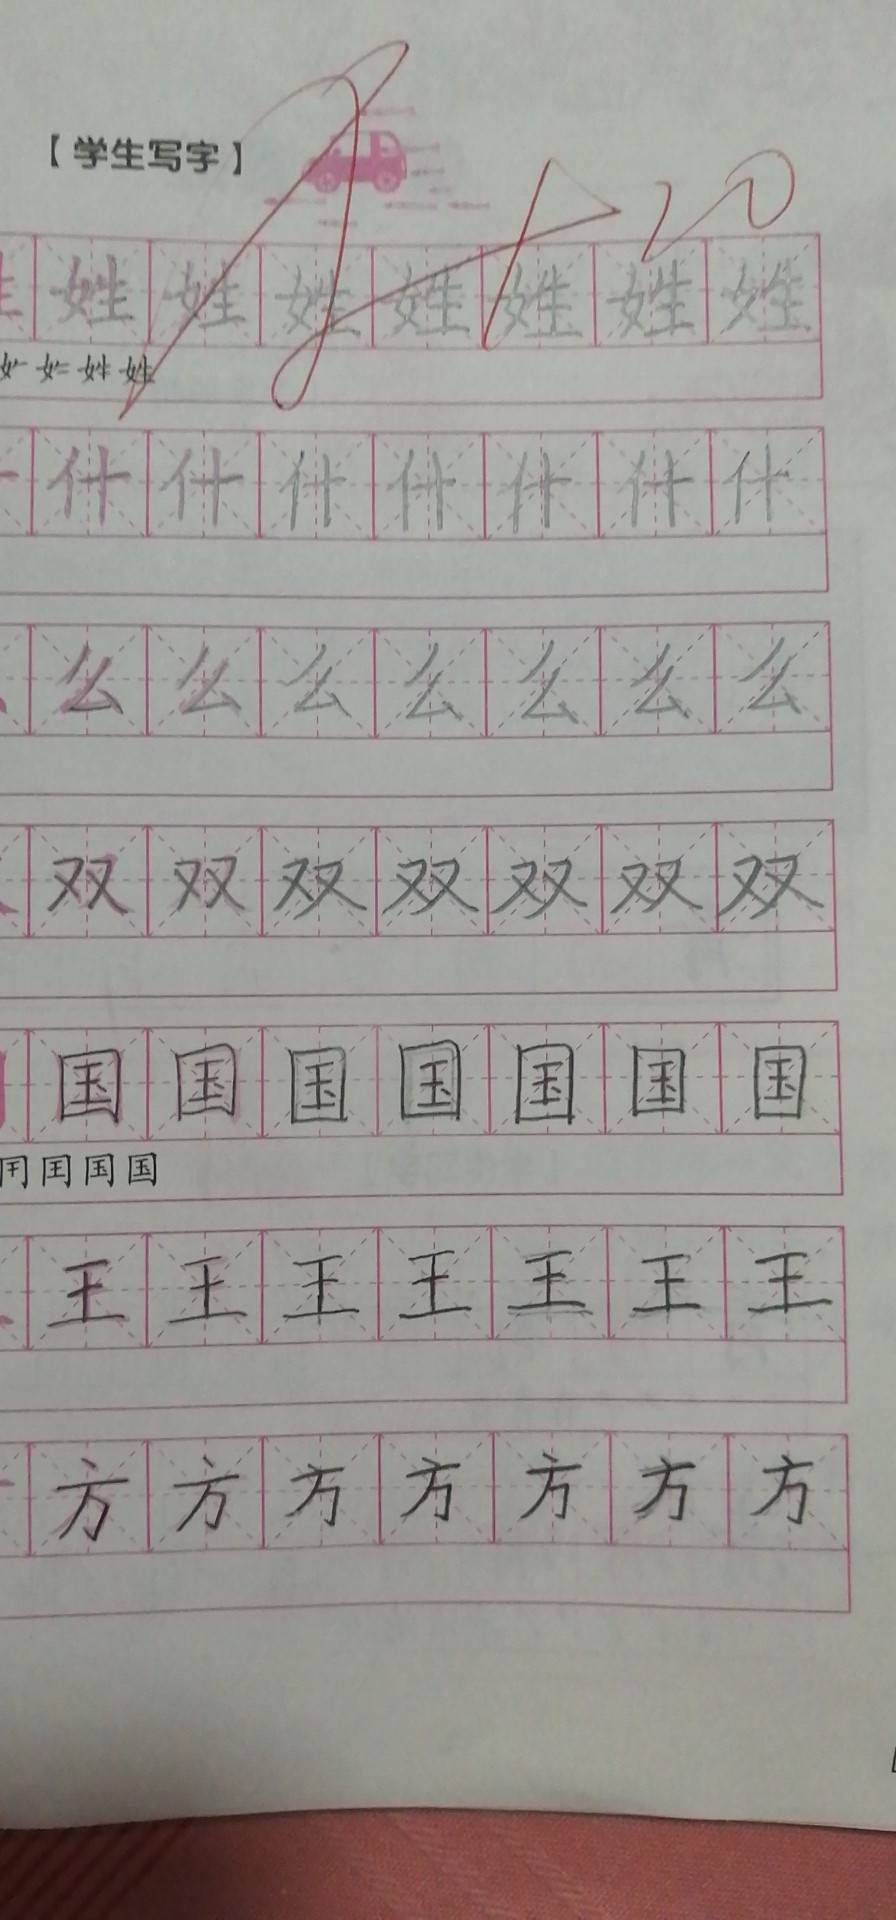 【学生写字】
姓 姓 姓 姓 姓 姓 姓
什 什 什 什 什 什 什
么 么 么 么 么 么 么
双 双 双 双 双 双 双
国 国 国 国 国 国 国
国 国
王 王 王 王 王 王 王
方 方 方 方 方 方 方